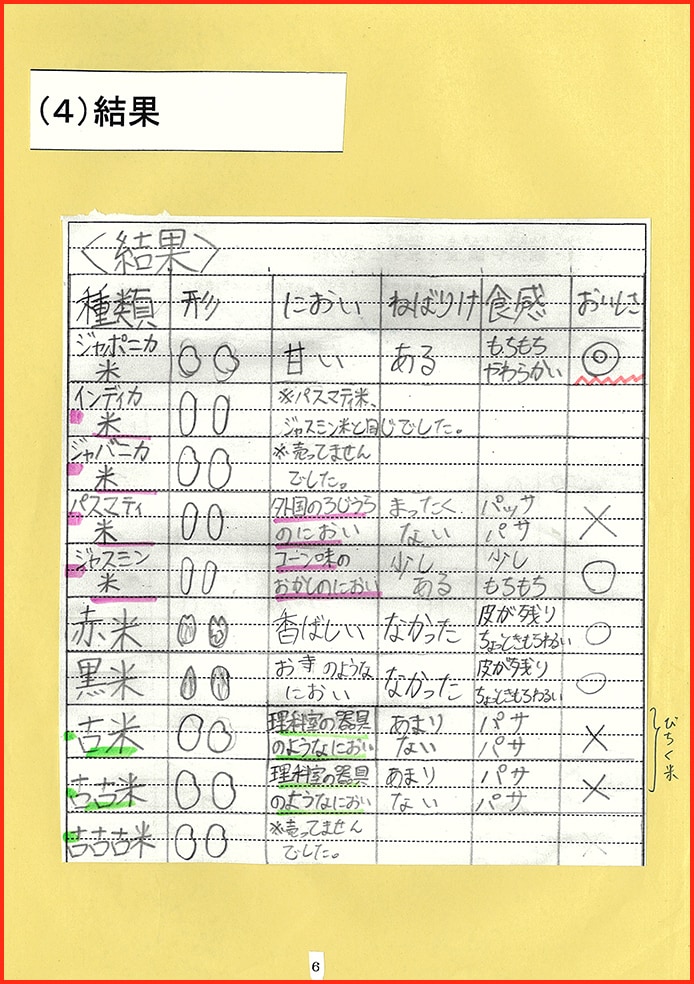 (4)結果
<結果>
種類 形 におい ねばりけ 食感 おいしさ
ジャポニカ米 甘い ある もちもちやわらかい ◎
インディカ米 ※パスマティ米、ジャスミン米と同じでした。
ジャバニカ米 ※売ってませんでした。
パスマティ米 外国のろじうらのにおい まったくない パッサパサ ×
ジャスミン米 コーン味のおかしのにおい 少しある 少しもちもち ○
赤米 香ばしい なかった 皮が残りちょっときもちわるい ○
黒米 お寺のようなにおい なかった 皮が残りちょときもちわるい ○
古米 理科室の器具のようなにおい あまりない パサパサ ×
古古米 理科室の器具のようなにおい あまりない パサパサ ×
びちく米
古古古米 ※売ってませんでした。
6